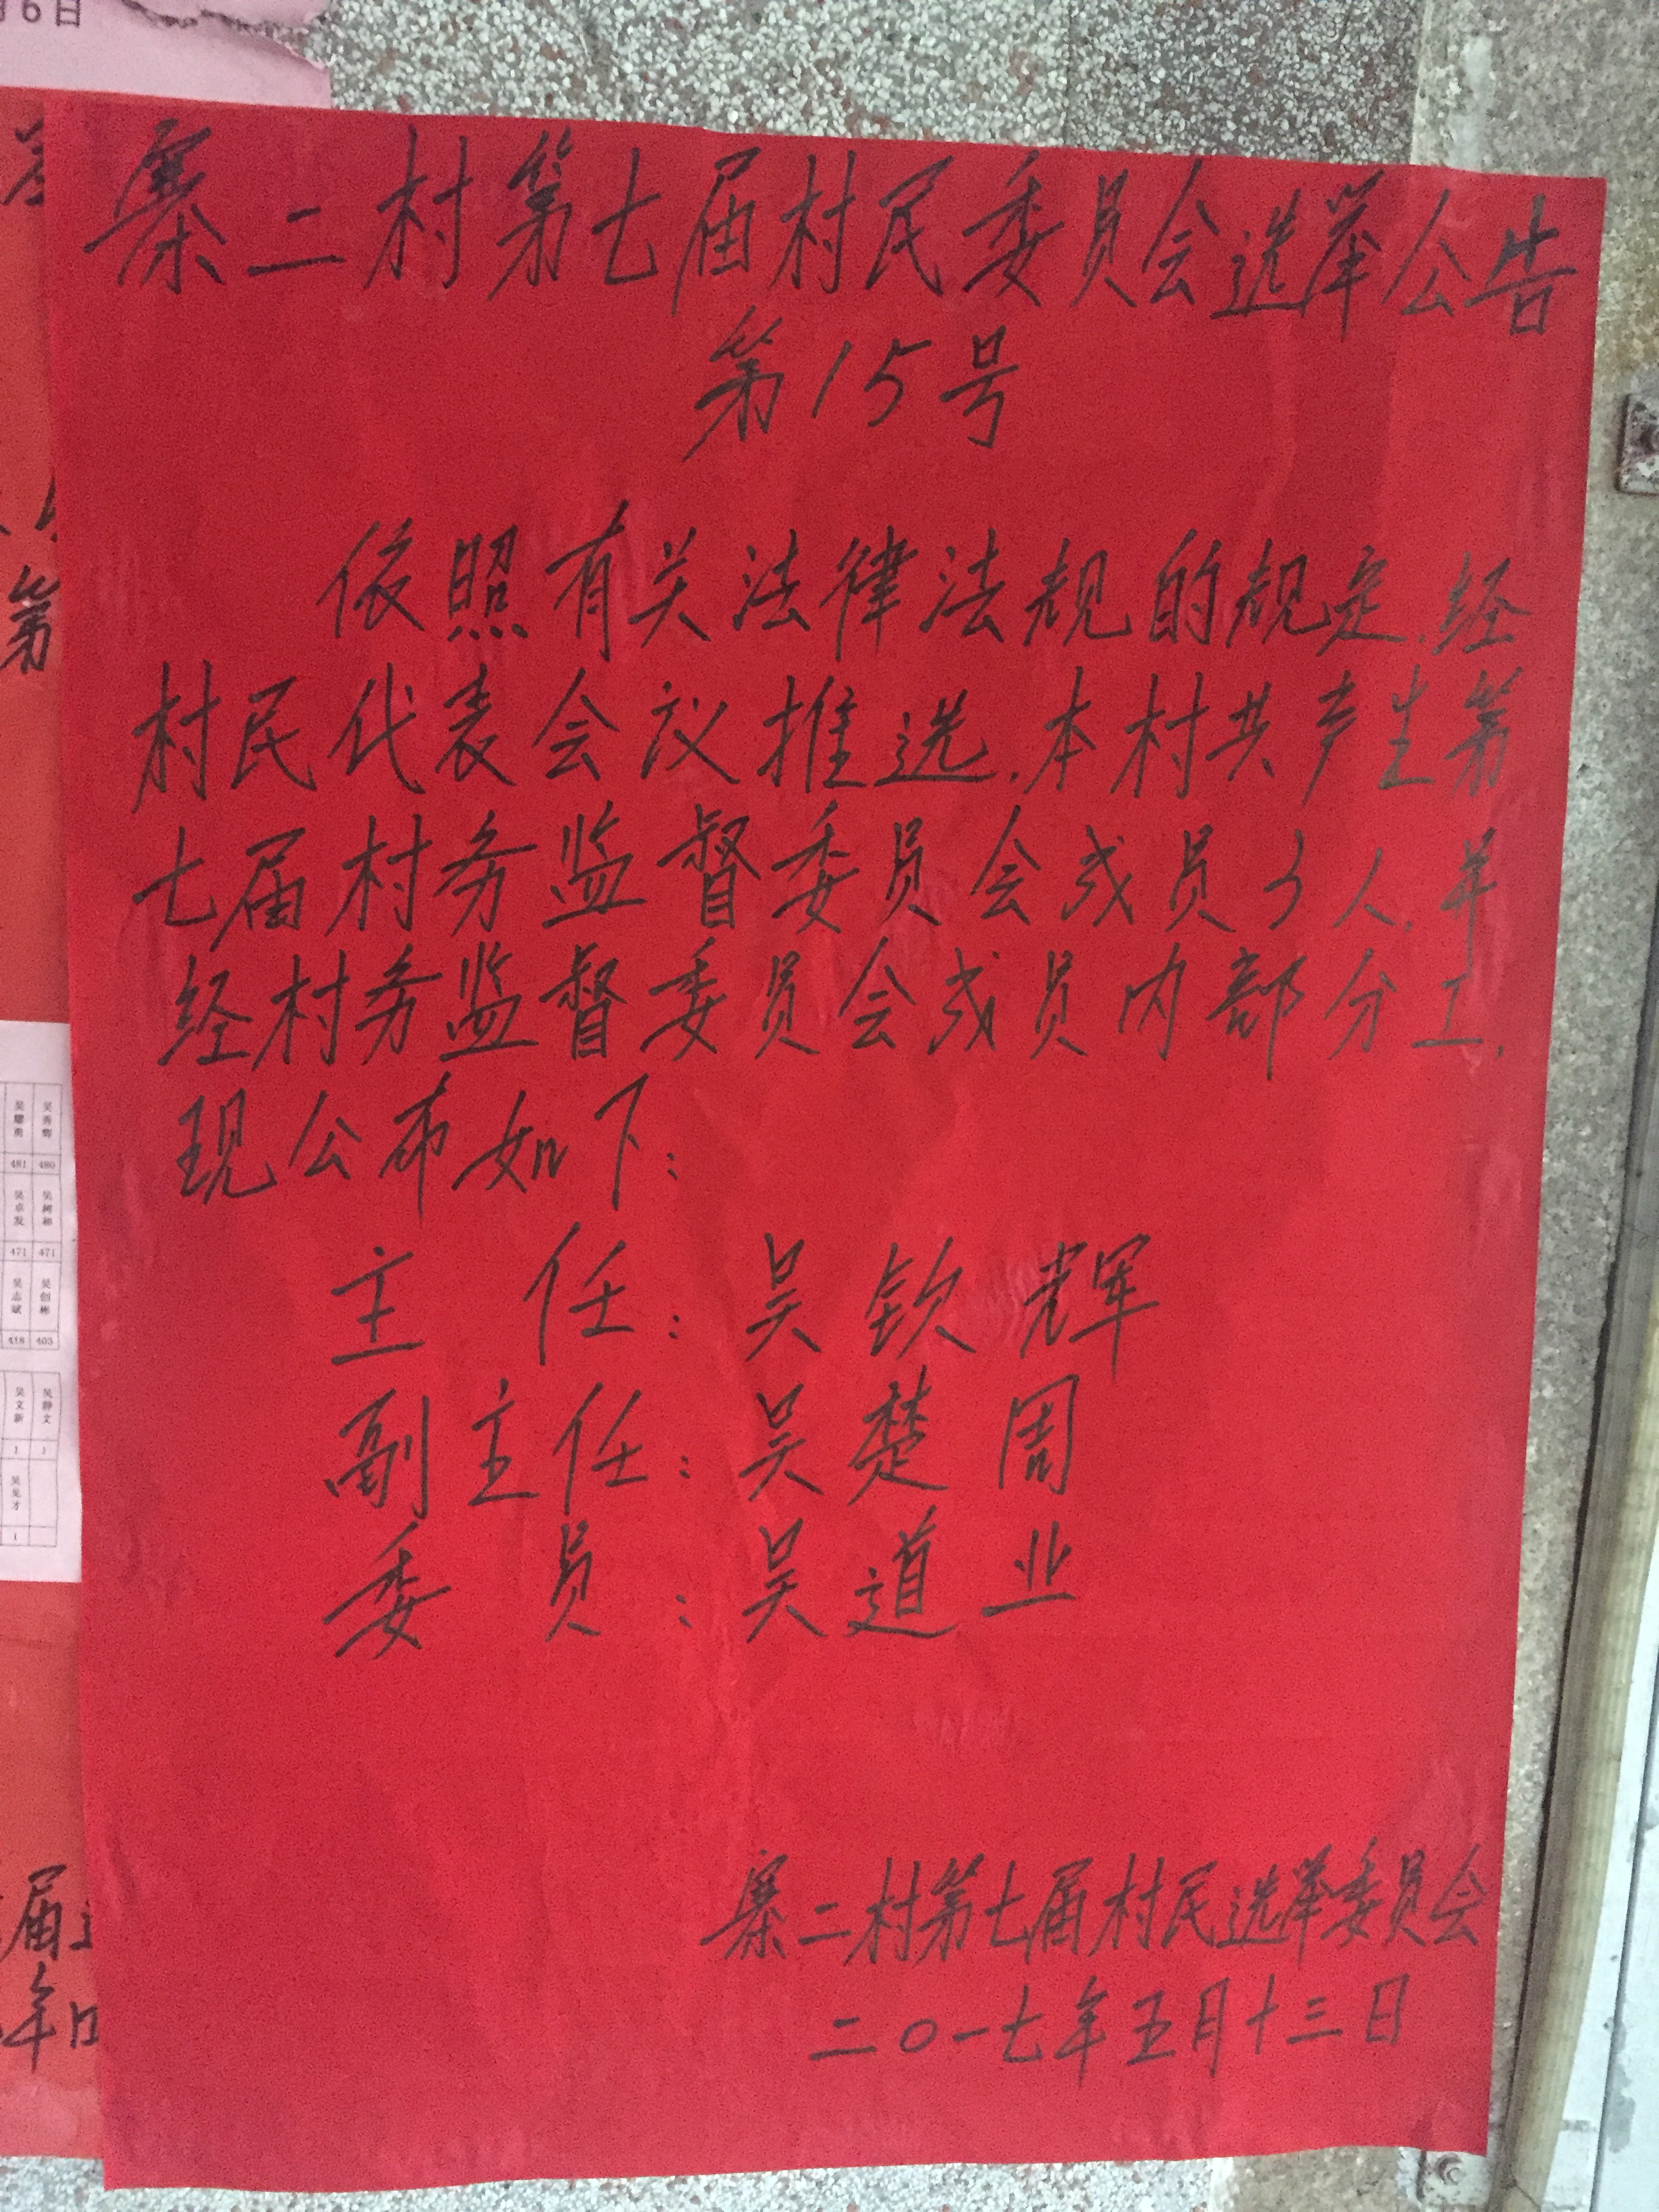 寨二村第七届村民委员会选举公告
第15号
依照有关法律法规的规定,经
村民代表会议推选,本村共产生第
七届村务监督委员会成员3人,并
经村务监督委员会成员内部分工,
现公布如下:
主 任:吴钦辉
副主任:吴楚周
委 员:吴道业
寨二村第七届村民选举委员会
二〇一七年五月十三日
6日
第
届
年
吴秀辉
480
吴树和
471
吴创彬
403
吴静文
1
吴耀勇
481
吴卓发
471
吴志斌
418
吴文新
1
吴见才
1